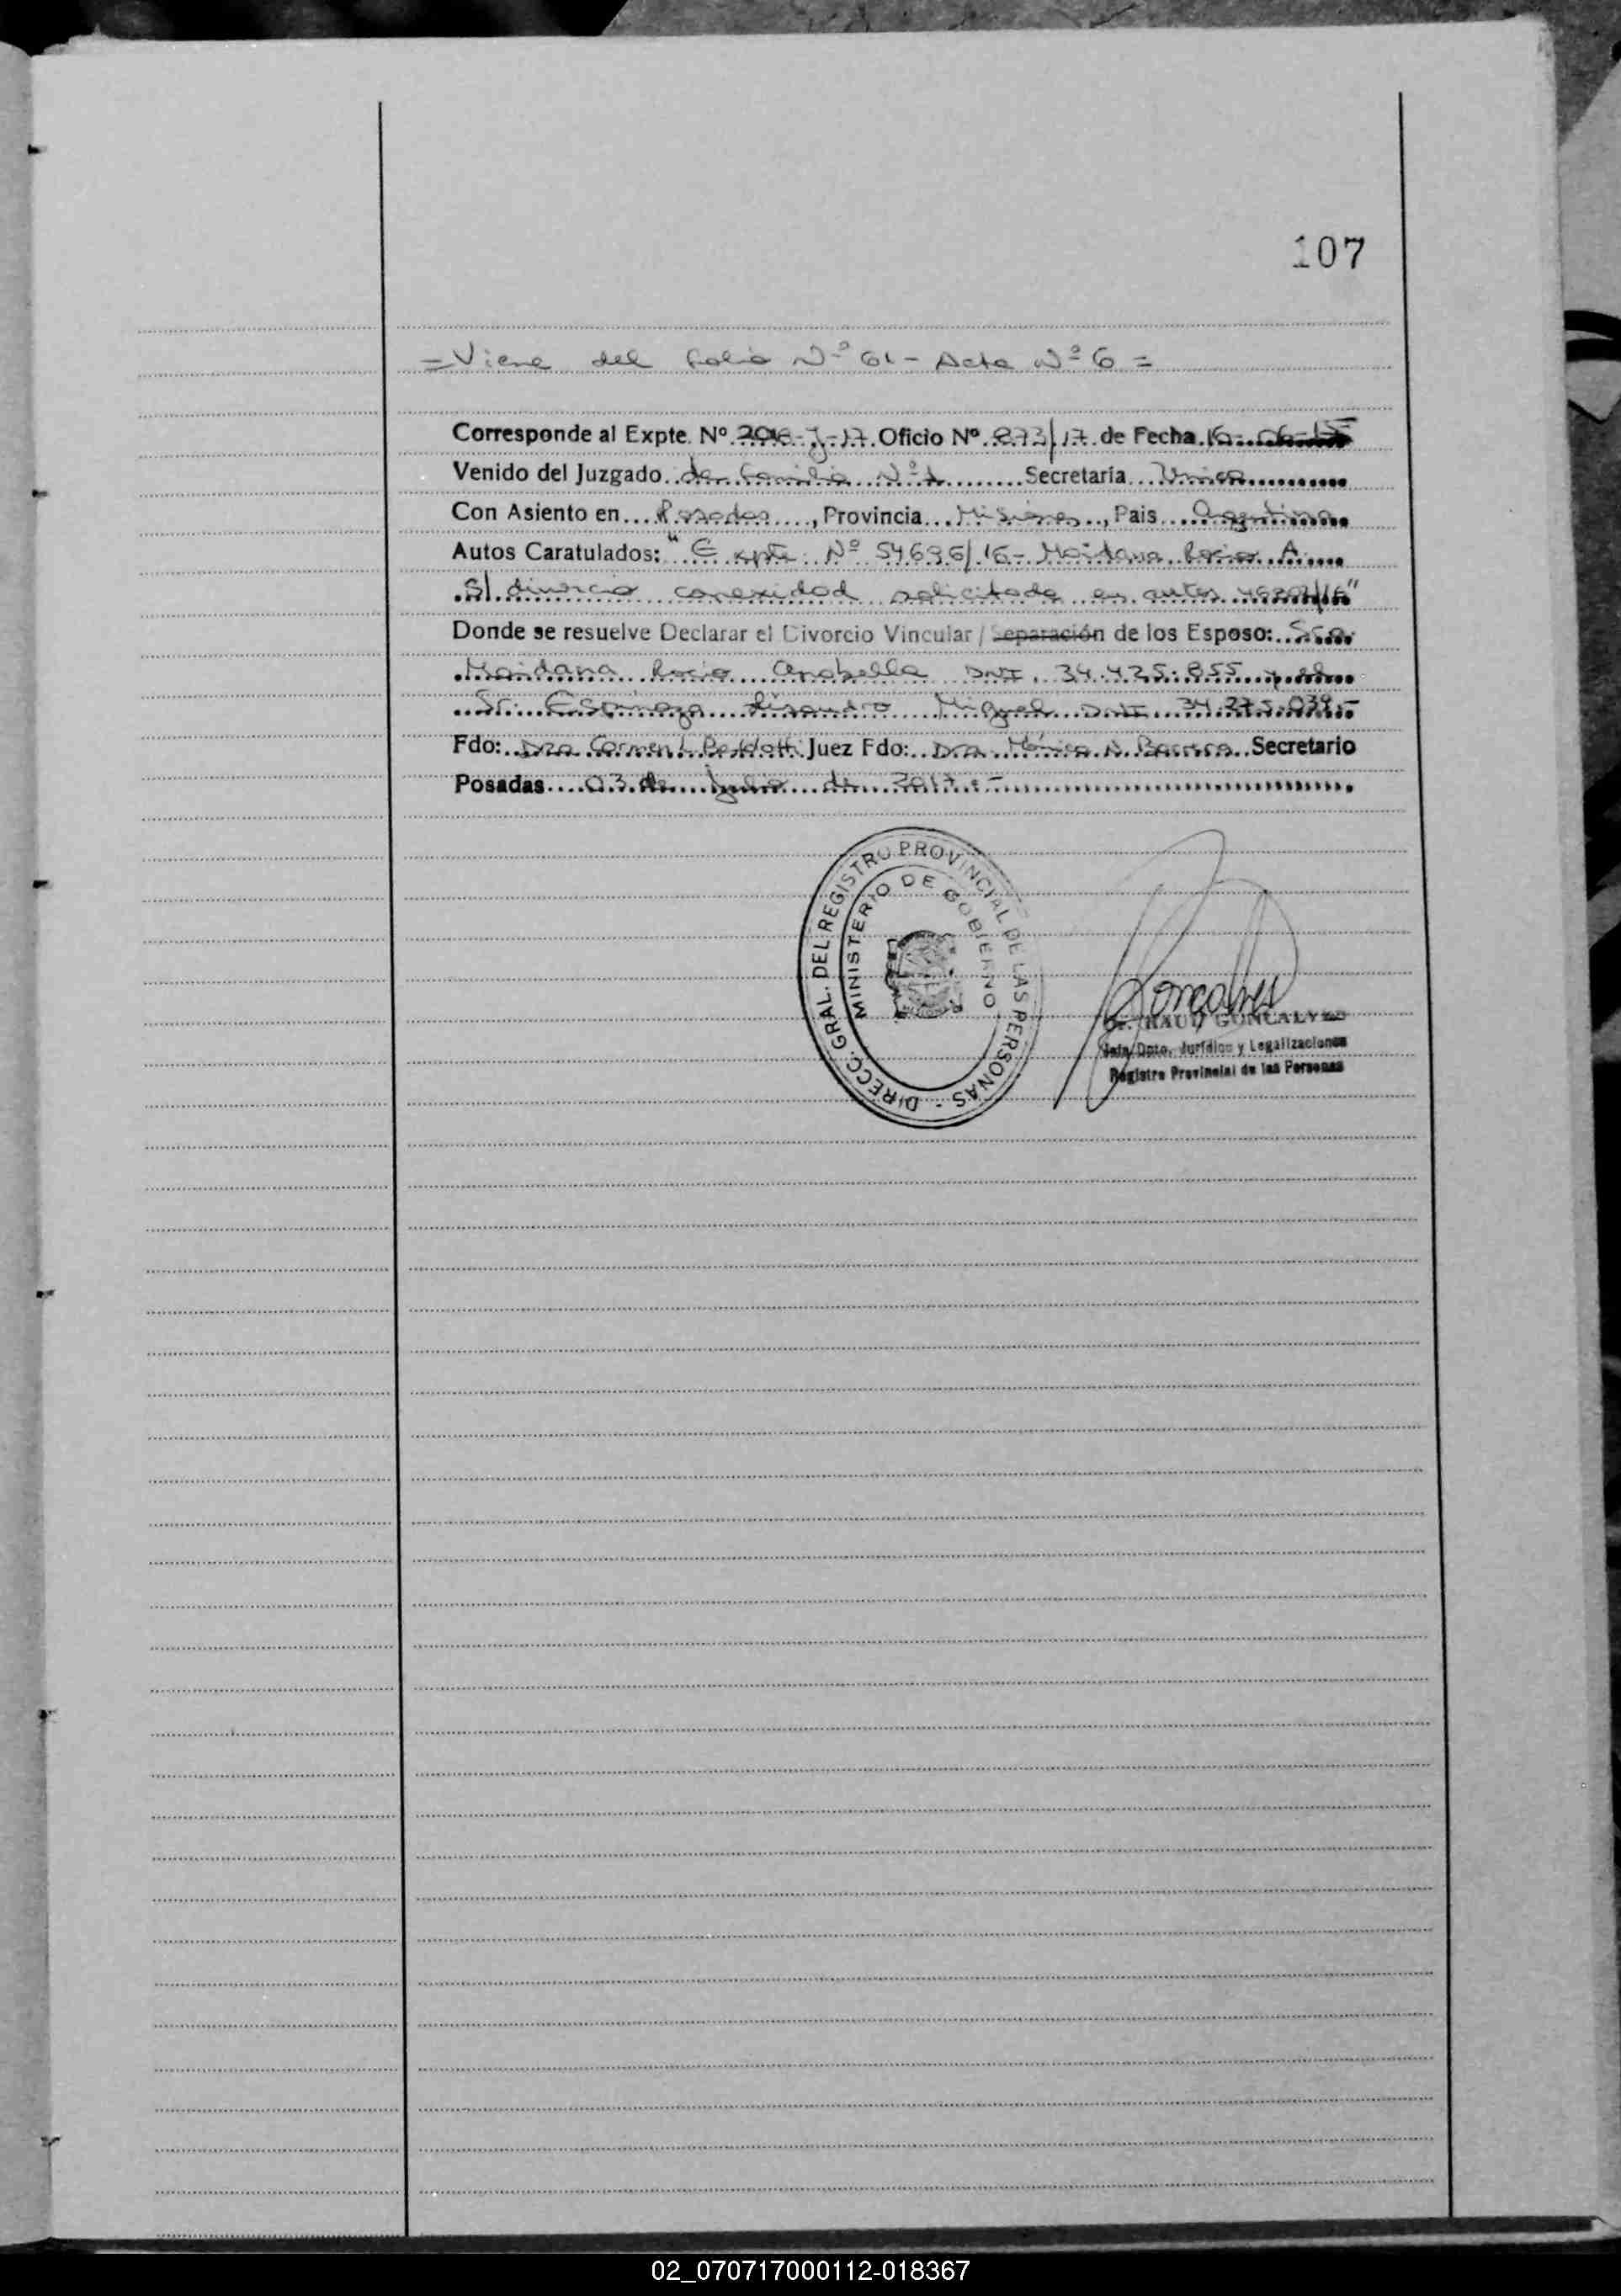 107
= Viene del folio Nº 61 - Acta Nº 6 =
Corresponde al Expte. Nº 2016-J-17 Oficio Nº 873/17 de Fecha 16-06-17
Venido del Juzgado de Familia Nº 1 Secretaría Unica
Con Asiento en Posadas, Provincia Misiones, Pais Argentina
Autos Caratulados: "Expte. Nº 54696/16 - Maidana Rocio A.
s/ divorcio conexidad solicitada en autos
Donde se resuelve Declarar el Divorcio Vincular / Separación de los Esposo: Sra.
Maidana Rocio Anabella DNI. 34.425.855 y el
Sr. Espinoza Lisandro Miguel DNI 34.275.039-
Fdo: Dra. Carmen L. Juez Fdo: Dra. Mónica N. Barrera Secretario
Posadas 03 de Julio de 2017.-
DIRECC. GRAL. DEL REGISTRO PROVINCIAL DE LAS PERSONAS -
MINISTERIO DE GOBIERNO
Goncalves
Dr. RAUL GONCALVES
Jefe Dpto. Jurídico y Legalizaciones
Registro Provincial de las Personas
02_070717000112-018367